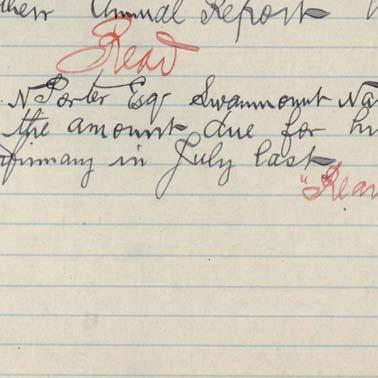 their Annual Report
Read
N Porter Esqr Swanmount Na
the amount due for hi
nfirmary in July last
"Read